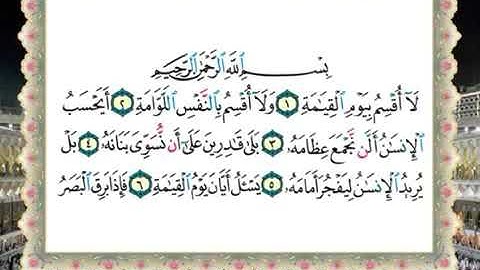 بِسْمِ اللَّهِ الرَّحْمَٰنِ الرَّحِيمِ
لَآ أُقْسِمُ بِيَوْمِ الْقِيَٰمَةِ ١ وَلَآ أُقْسِمُ بِالنَّفْسِ اللَّوَّامَةِ ٢ أَيَحْسَبُ
الْإِنسَٰنُ أَلَّن نَّجْمَعَ عِظَامَهُۥ ٣ بَلَىٰ قَٰدِرِينَ عَلَىٰٓ أَن نُّسَوِّىَ بَنَانَهُۥ ٤ بَلْ
يُرِيدُ الْإِنسَٰنُ لِيَفْجُرَ أَمَامَهُۥ ٥ يَسْـَٔلُ أَيَّانَ يَوْمُ الْقِيَٰمَةِ ٦ فَإِذَا بَرِقَ الْبَصَرُ